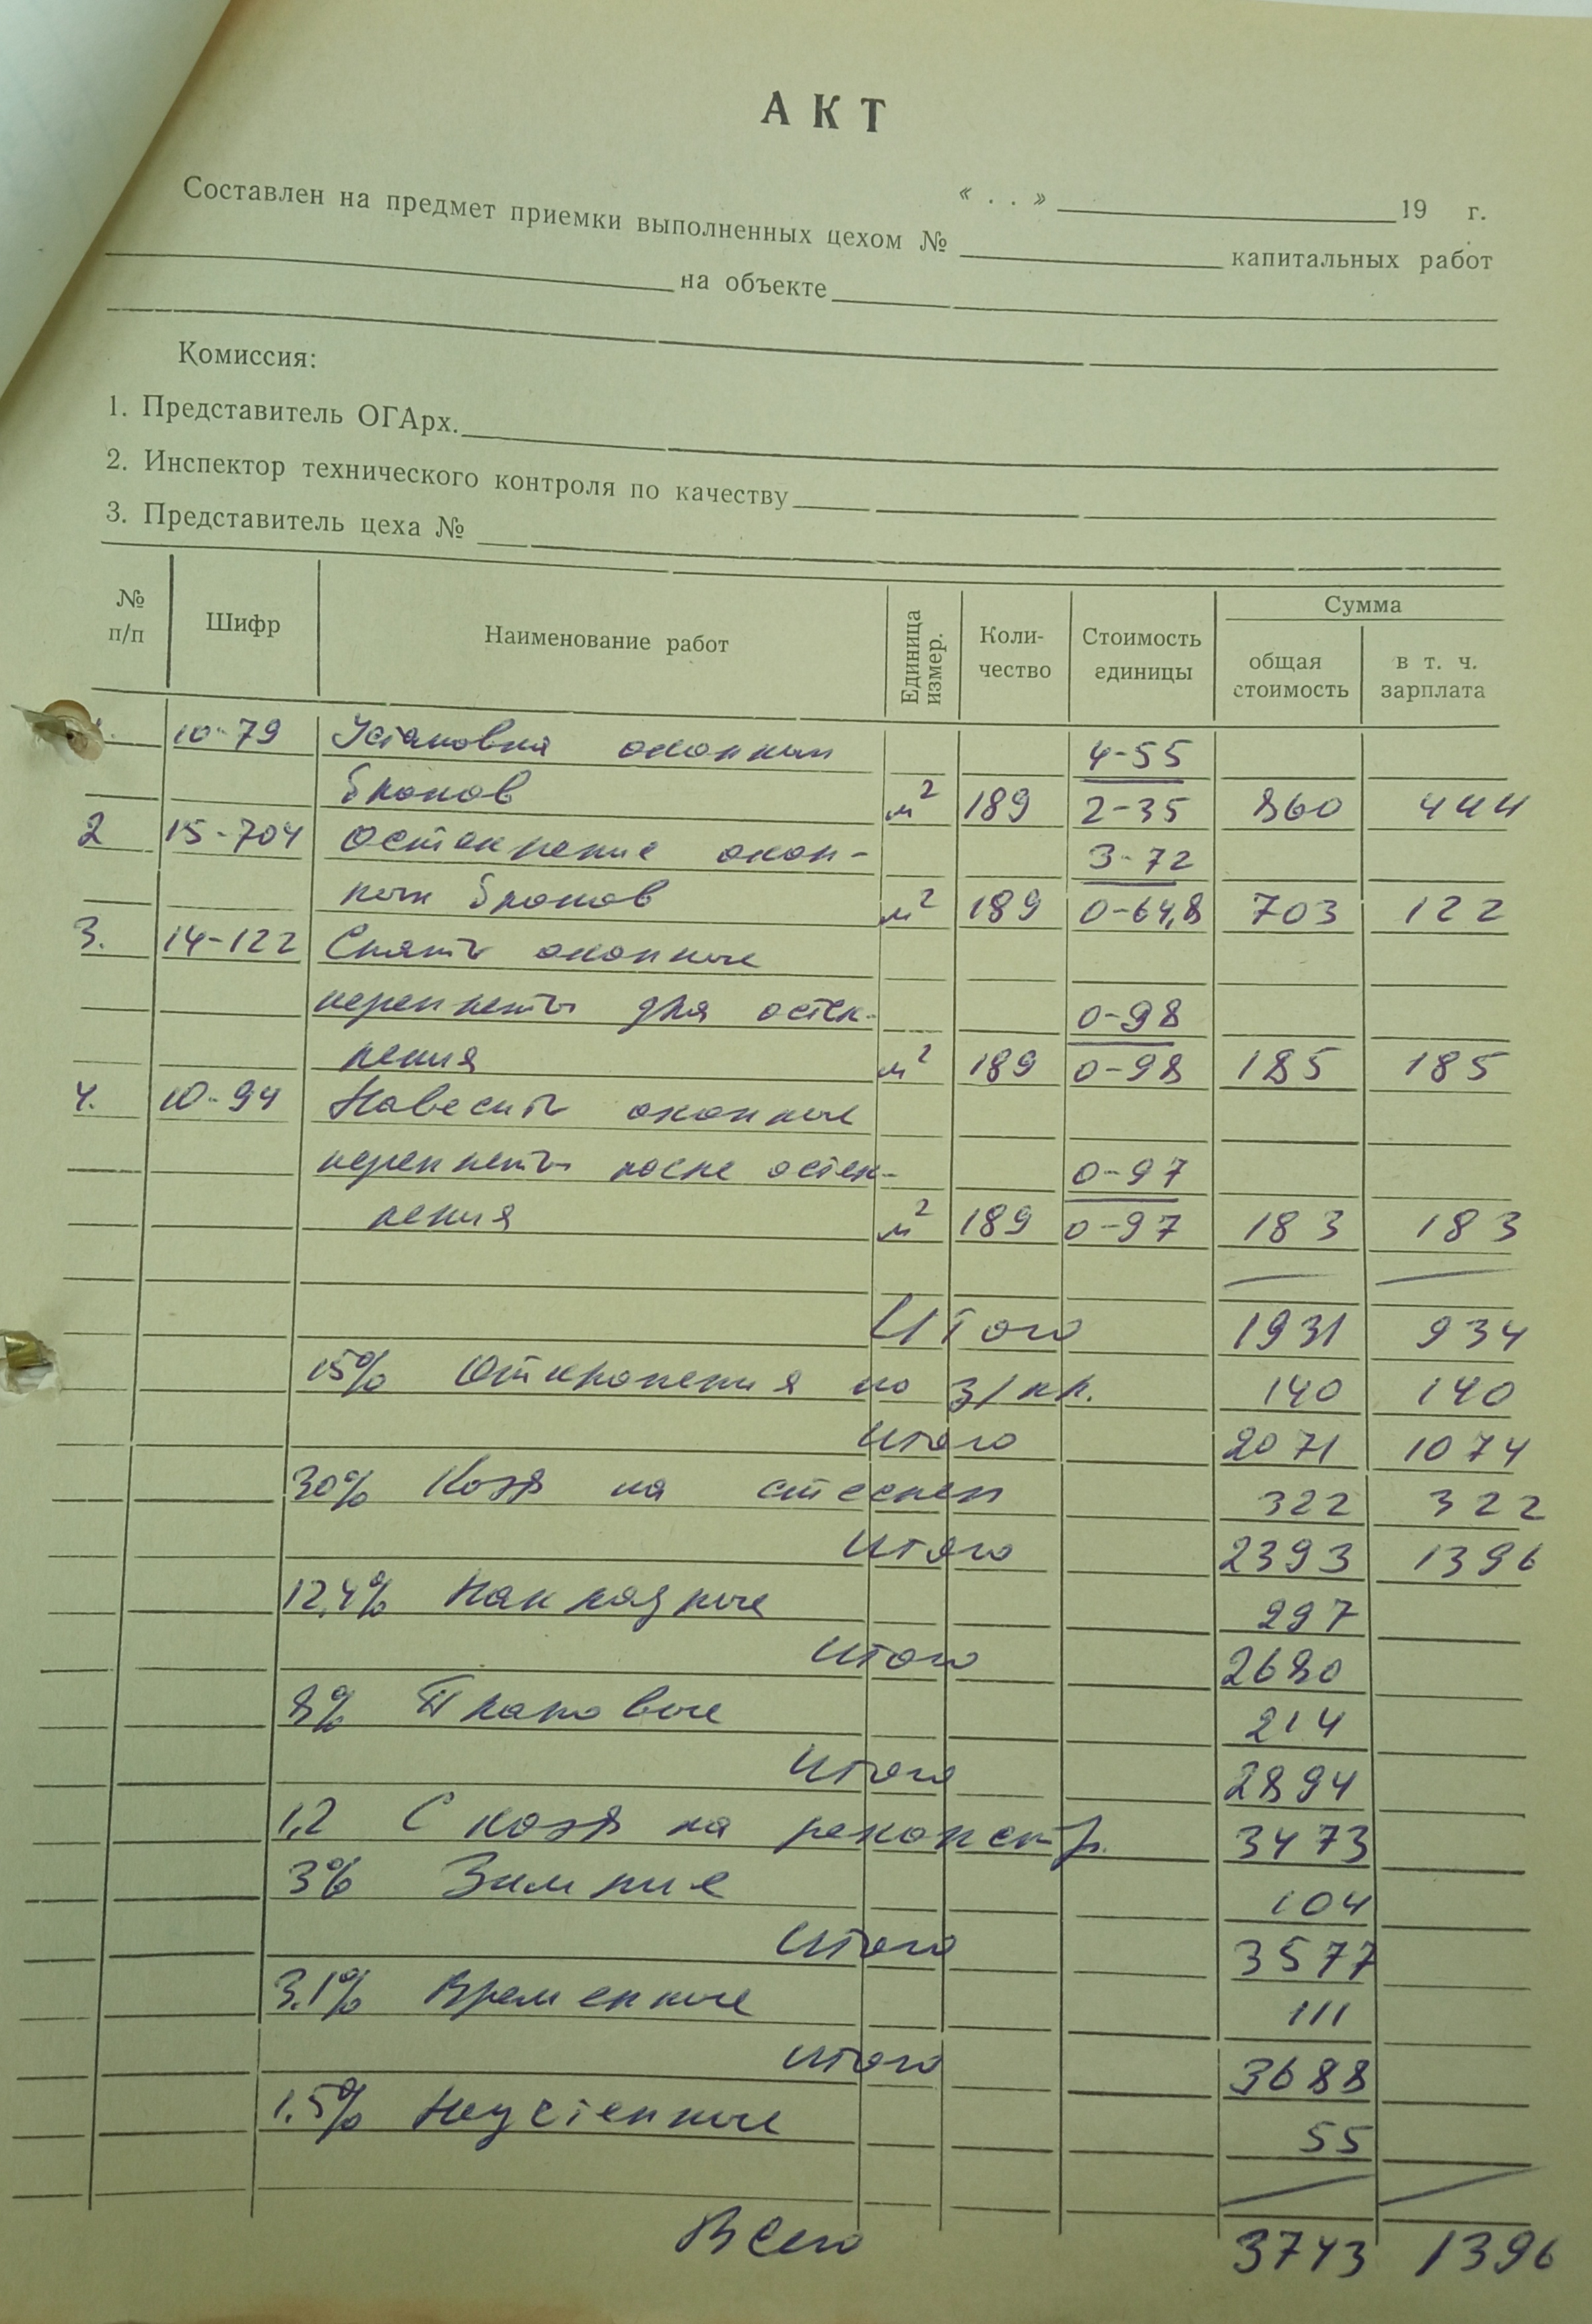 АКТ
« . . » 19 г.
Составлен на предмет приемки выполненных цехом № капитальных работ
на объекте
Комиссия:
1. Представитель ОГАрх.
2. Инспектор технического контроля по качеству
3. Представитель цеха №
№ п/п Шифр Наименование работ Единица измер. Коли- чество Стоимость единицы Сумма
общая стоимость в т. ч. зарплата
1. 10-79 Установка оконных 4-55
блоков м² 189 2-35 860 444
2 15-704 Остекление окон- 3-72
ных блоков м² 189 0-64,8 703 122
3. 14-122 Снять оконные
переплеты для остек- 0-98
ления м² 189 0-98 185 185
4. 10-94 Навесить оконные
переплеты после остек- 0-97
ления м² 189 0-97 183 183
Итого 1931 934
15% Отклонения по з/пл. 140 140
Итого 2071 1074
30% Коэф на стеснен 322 322
Итого 2393 1396
12,4% Накладные 297
Итого 2680
8% Плановые 214
Итого 2894
1,2 С коэф на реконстр. 3473
3% Зимние 104
Итого 3577
3.1% Временные 111
Итого 3688
1.5% Неучтенные 55
Всего 3743 1396